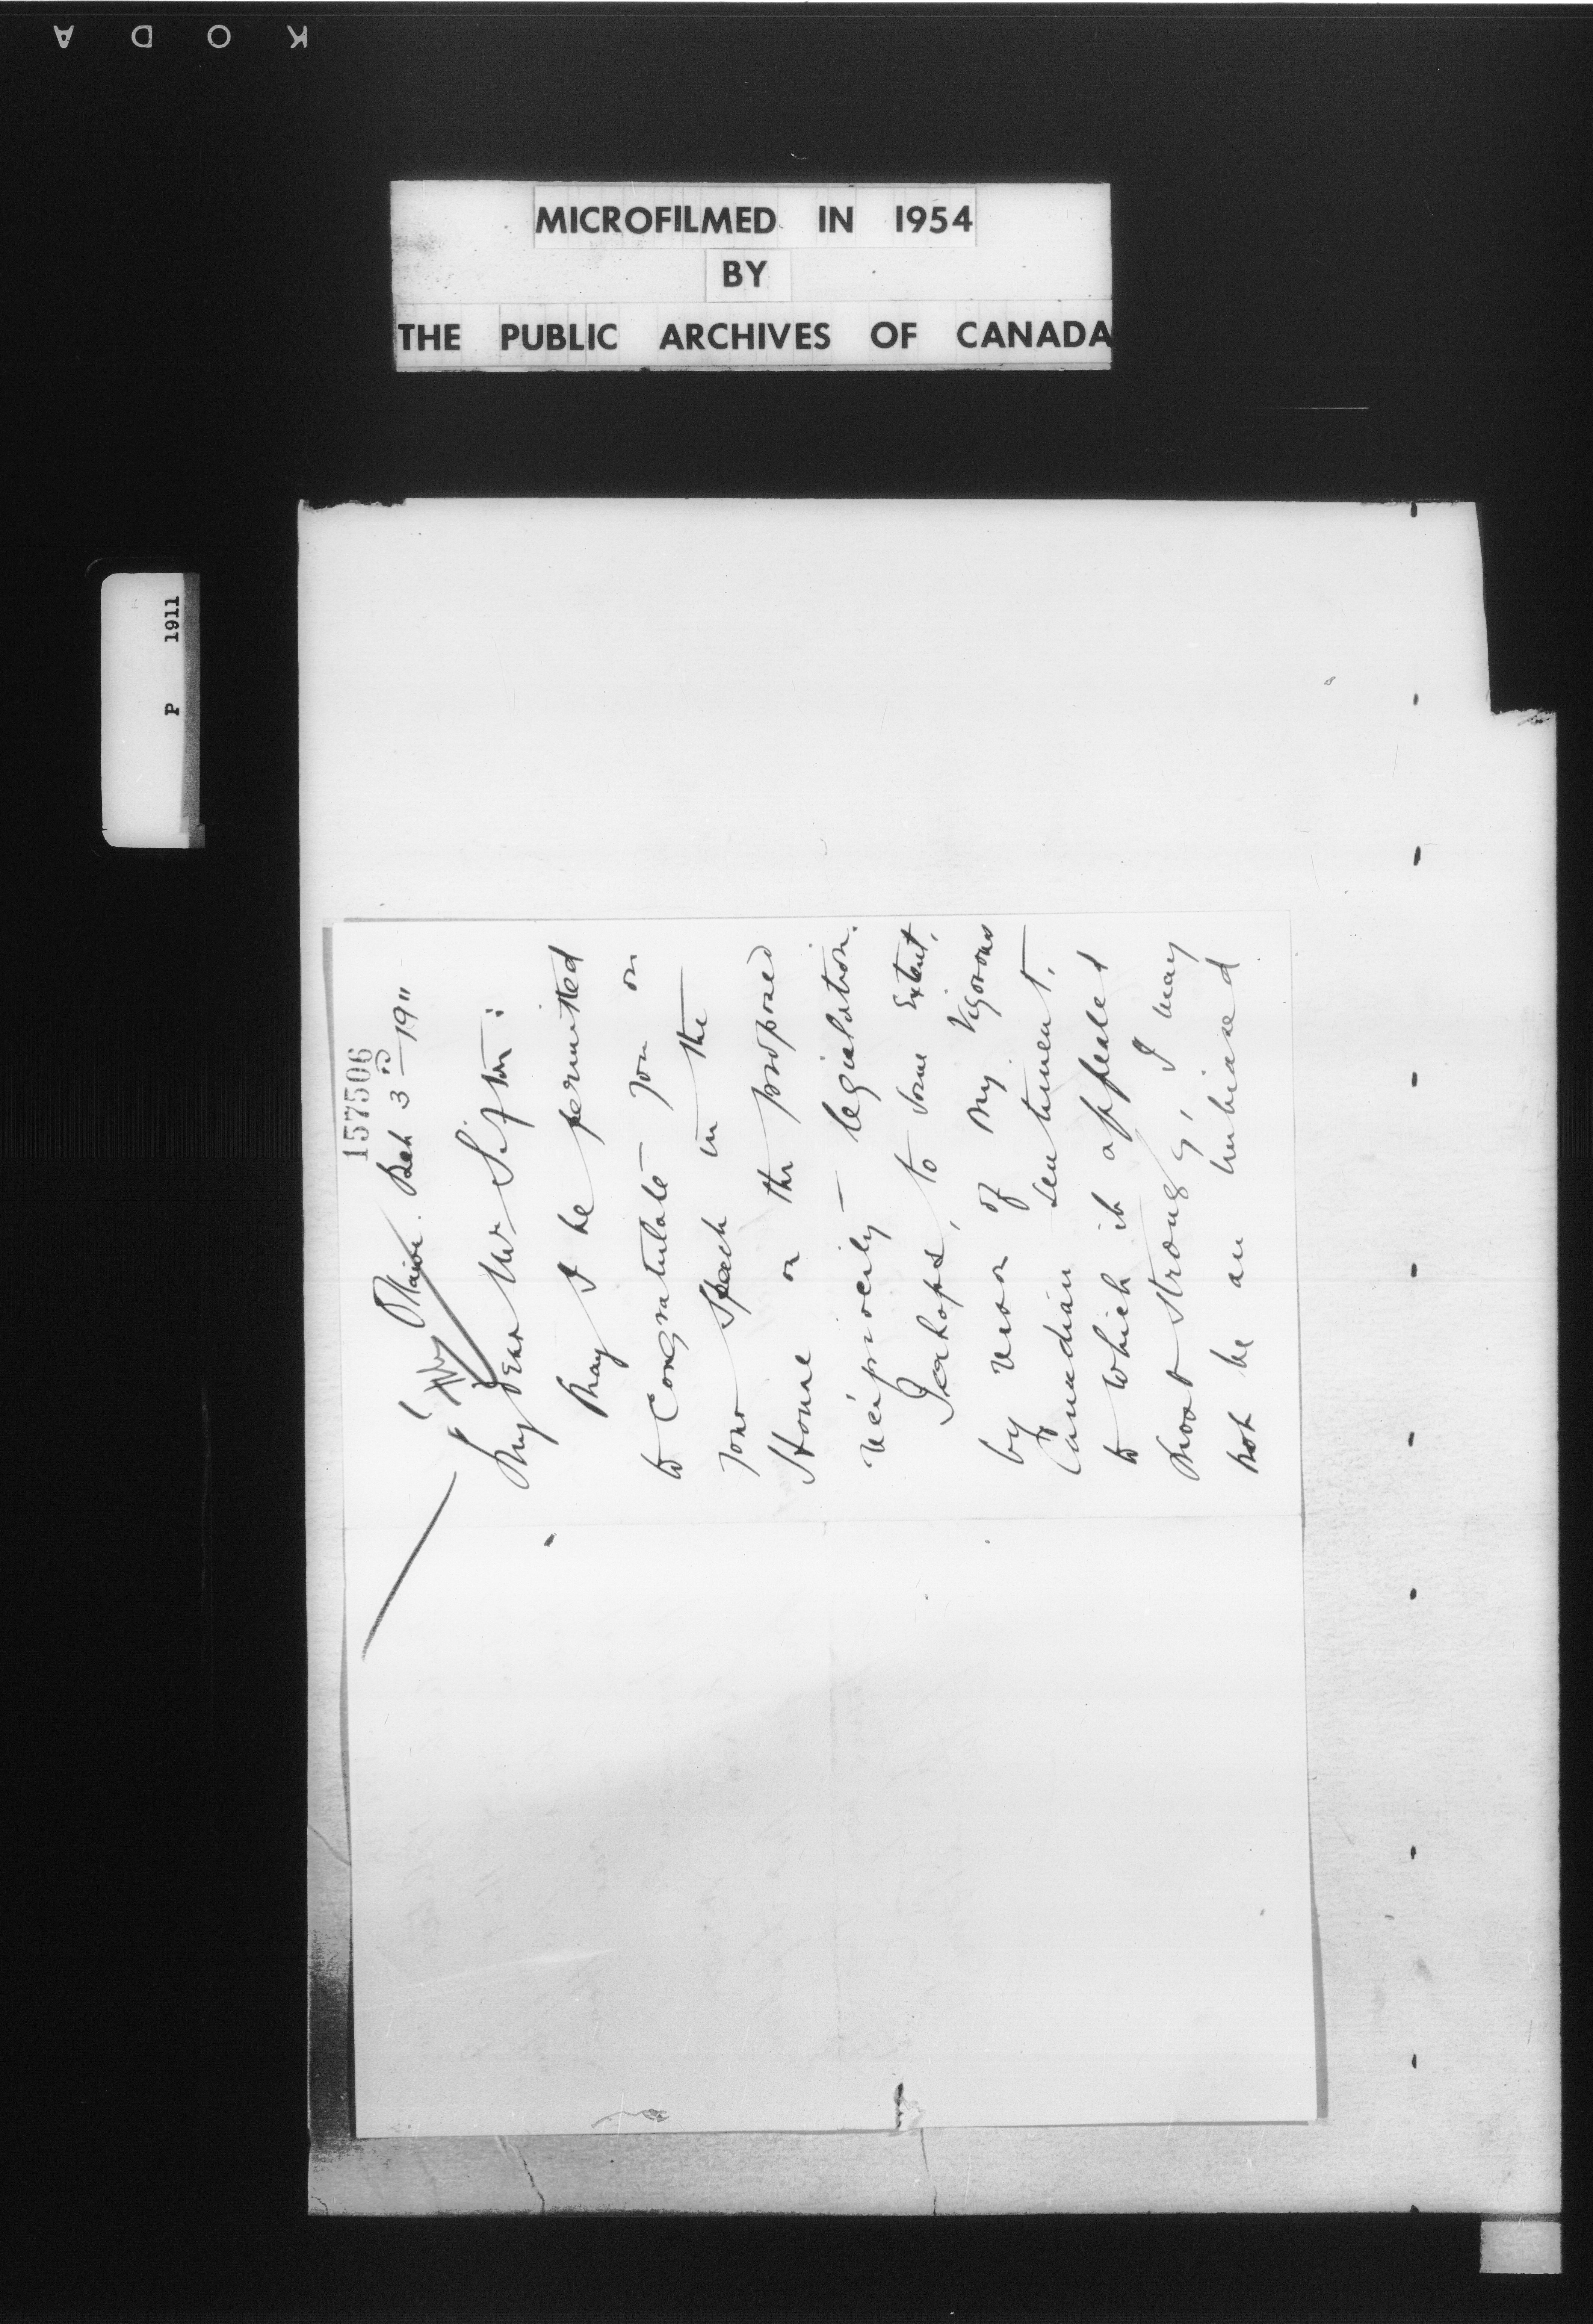 KODA
MICROFILMED IN 1954
BY
THE PUBLIC ARCHIVES OF CANADA
P 1911
157506
Ottawa. Mch 3rd 1911
My dear Mr Sifton:
May I be permitted
to Congratulate you on
your Speech in the
House on the proposed
reciprocity legislation.
Perhaps, to some Extent,
by reason of my vigorous
Canadian sentiment,
to which it appealed
most strongly, I may
not be an unbiased